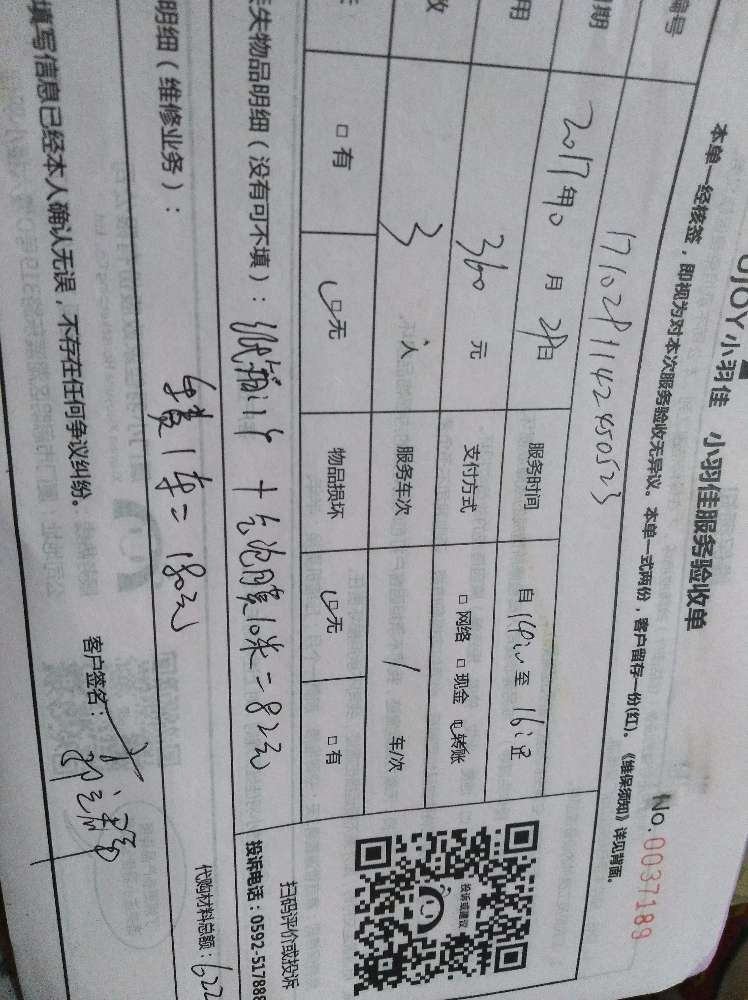 UJOY小羽佳 小羽佳服务验收单
No.0037189
本单一经核签，即视为对本次服务验收无异议。本单一式两份，客户留存一份(红)。《维保须知》详见背面。
编号 1710281142450523
日期 2017年10月28日 服务时间 自14:00至16:05
用 360元 支付方式 □网络 □现金 ☑转账
数 3人 服务车次 1车/次
□有 ☑无 物品损坏 ☑无 □有
失物品明细（没有可不填）：纸箱11个 + 气泡膜10米=82元
明细（维修业务）：
车费1车=180元
填写信息已经本人确认无误，不存在任何争议纠纷。
客户签名：
代购材料总额：622
投诉或建议
扫码评价或投诉
投诉电话：0592-517888